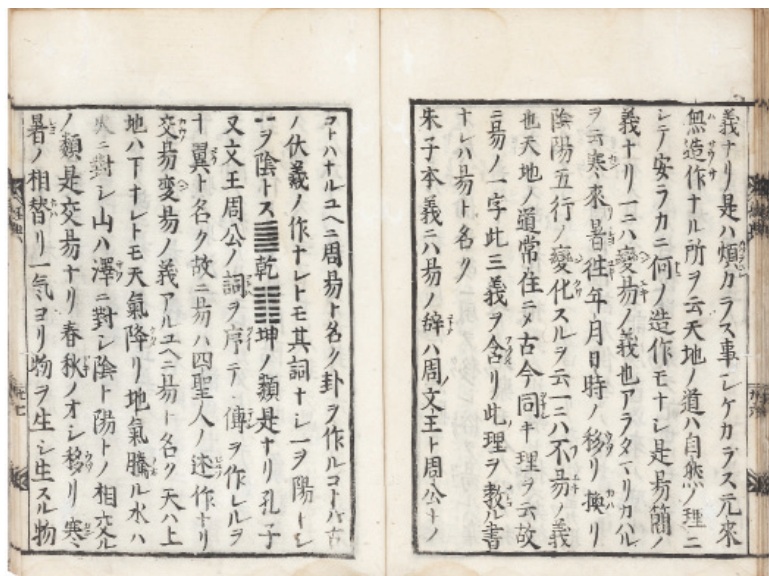 義ナリ是ハ煩カラス事シケカラス元來
無造作ナル所ヲ云天地ノ道ハ自然ノ理ニ
シテ安ラカニ何ノ造作モナシ是易簡ノ
義ナリ一ニハ變易ノ義也アラタマリカハル
ヲ云寒來暑往年月日時ノ移リ換リ
陰陽五行ノ變化スルヲ云一ニハ不易ノ義
也天地ノ道常住ニメ古今同キ理ヲ云故
ニ易ノ一字此三義ヲ含リ此理ヲ教ル書
ナレハ易ト名ク
朱子本義ニハ易ノ辞ハ周ノ文王ト周公トノ
コトハナルユヘニ周易ト名ク卦ヲ作ルコトハ古
ノ伏羲ノ作ナレトモ其詞ナシ一ヲ陽トシ
⚋ヲ陰トス䷀乾䷁坤ノ類是ナリ孔子
又文王周公ノ詞ヲ序テ傳ヲ作レルヲ
十翼ト名ク故ニ易ハ四聖人ノ述作ナリ
交易變易ノ義アルユヘニ易ト名ク天ハ上
地ハ下ナレトモ天氣降リ地氣騰ル水ハ
火ニ對シ山ハ澤ニ對シ陰ト陽トノ相交ル
ノ類是交易ナリ春秋ノオシ移リ寒
暑ノ相替リ一気ヨリ物ヲ生シ生スル物